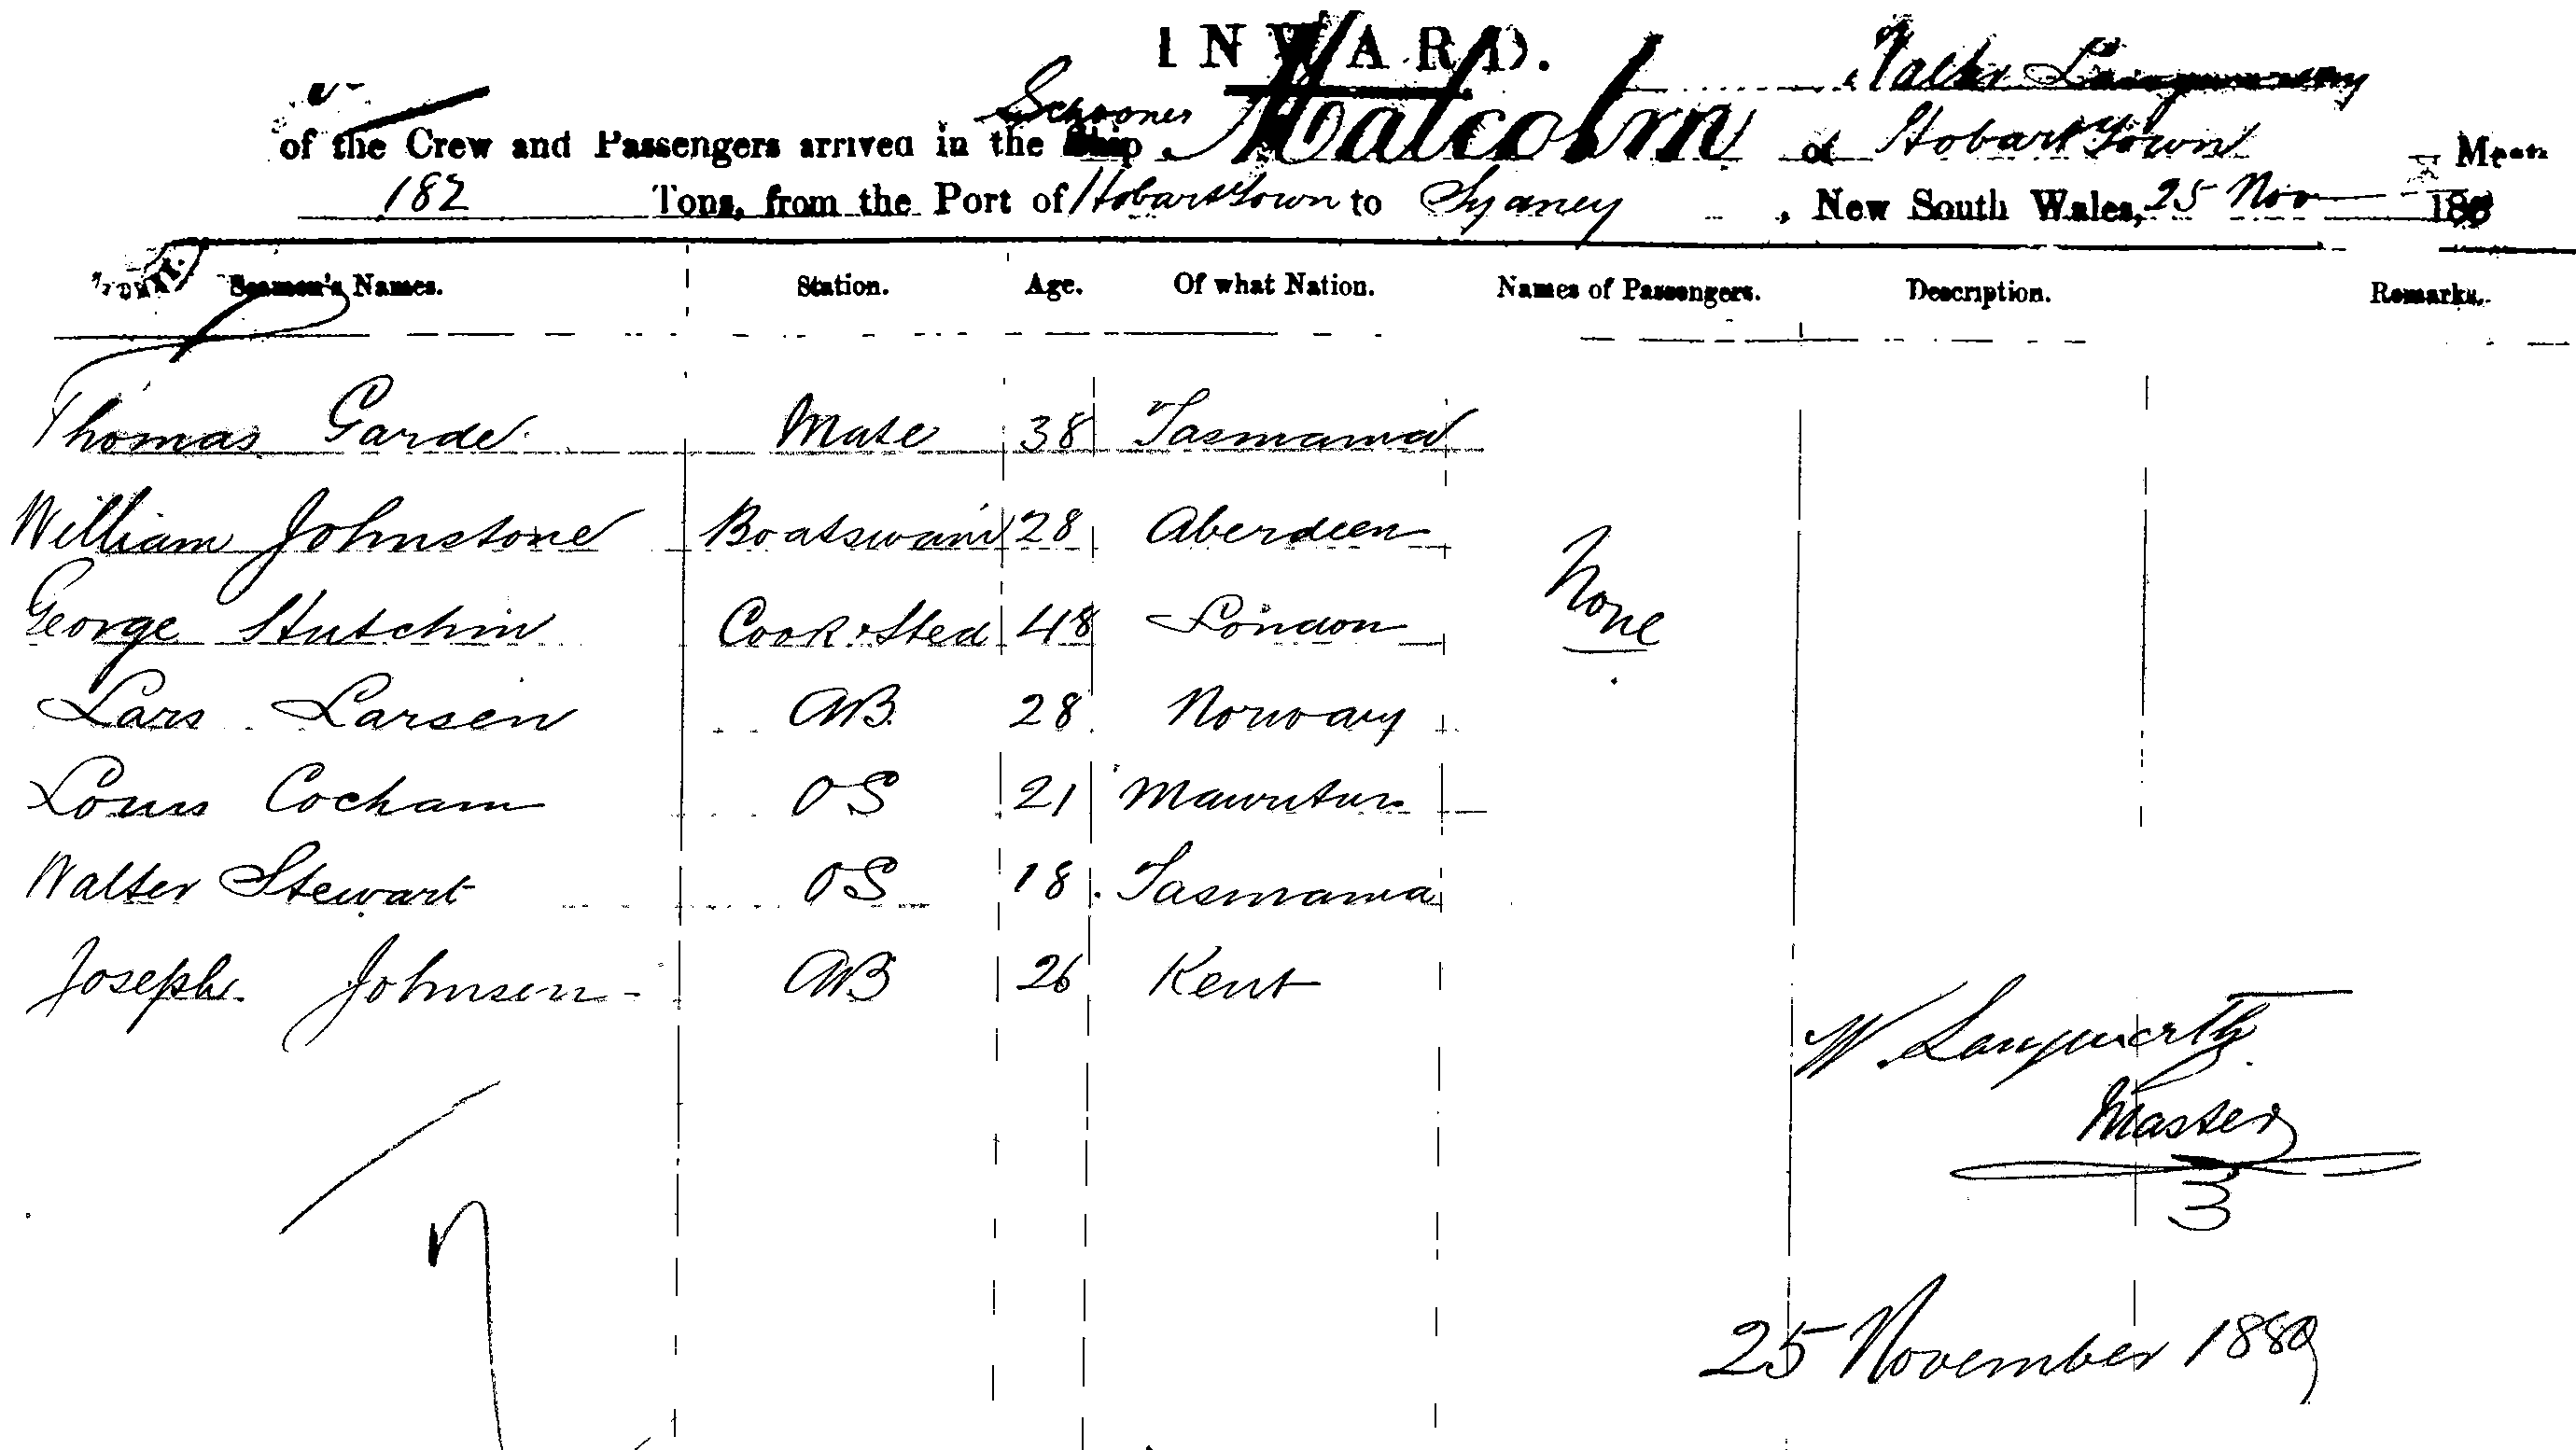 INWARD.
Walter
of the Crew and Passengers arrived in the Ship Schooner Malcolm of Hobart Town
182 Tons, from the Port of Hobart Town to Sydney, New South Wales, 25 Nov 188
Seamen's Names. Station. Age. Of what Nation. Names of Passengers. Description. Remarks.
Thomas Garde Mate 38 Tasmania
William Johnstone Boatswain 28 Aberdeen
George Hutchin Cook & Sted 48 London
None
Lars Larsen AB. 28 Norway
Louis Cocham OS 21
Walter Stewart OS 18 Tasmania
Joseph Johnsen AB 26 Kent
W. Langworth
Master
25 November 1889